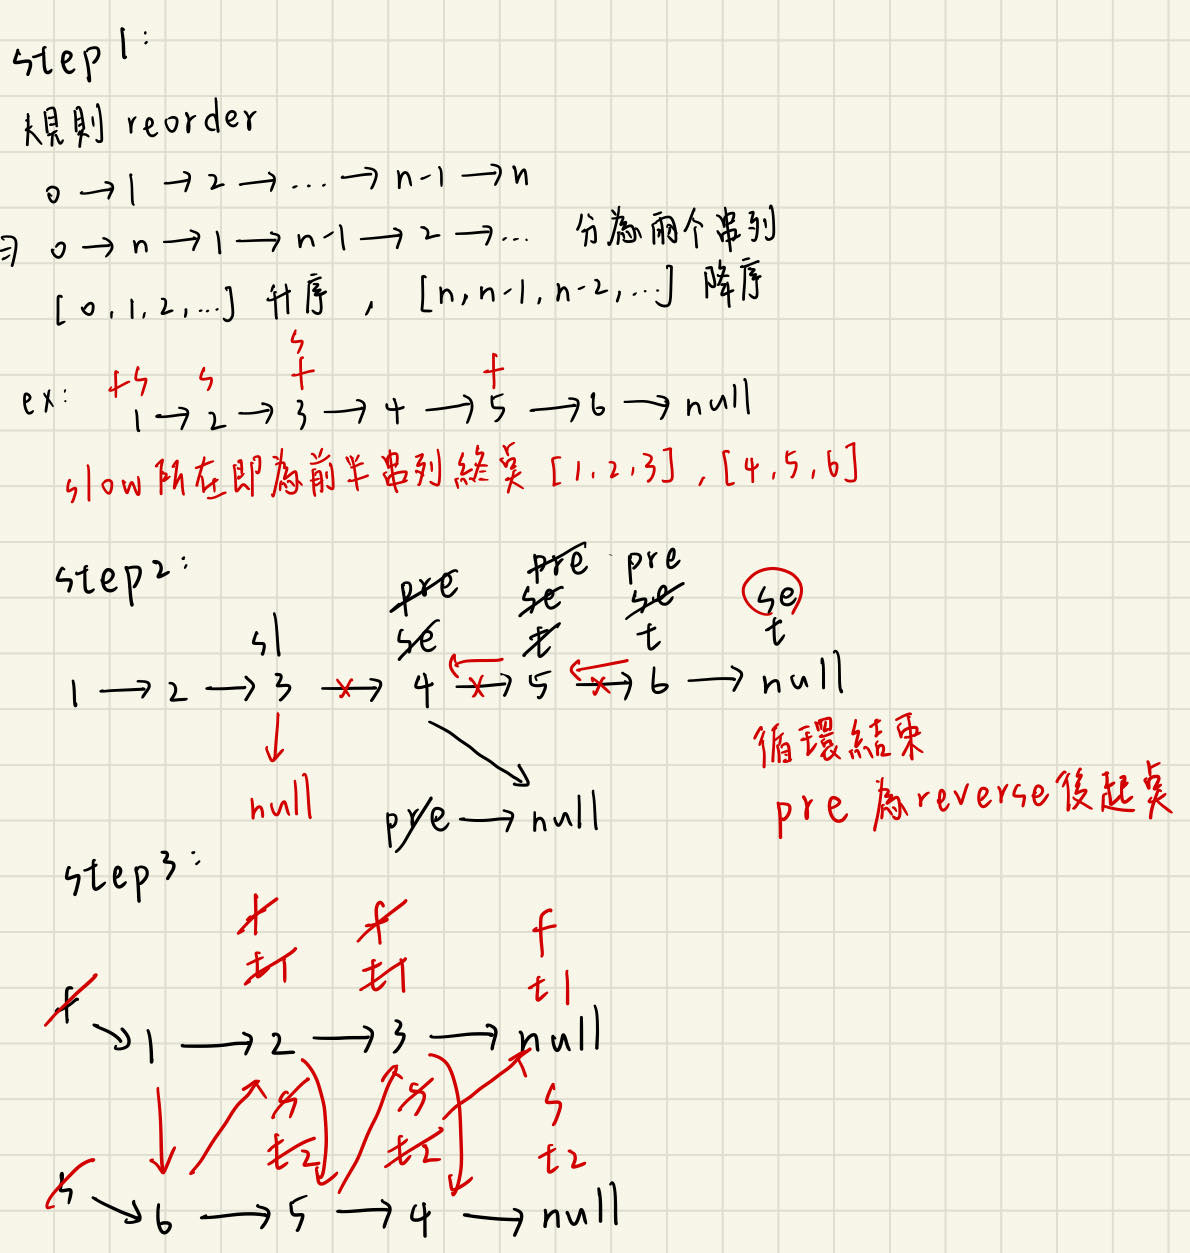 step 1:
規則 reorder
0 → 1 → 2 → ... → n-1 → n
⇒ 0 → n → 1 → n-1 → 2 → ... 分為兩个串列
[0, 1, 2, ...] 升序 , [n, n-1, n-2, ...] 降序
s
f s s f f
ex: 1 → 2 → 3 → 4 → 5 → 6 → null
slow 所在即為前半串列終点 [1, 2, 3] , [4, 5, 6]
step 2:
pre pre
pre se se se
sl se t t t
1 → 2 → 3 → 4 → 5 → 6 → null
循環結束
null pre → null
pre 為 reverse 後起点
step 3:
f f f
t1 t1 t1
f
1 → 2 → 3 → null
s s s
t2 t2 t2
s
6 → 5 → 4 → null